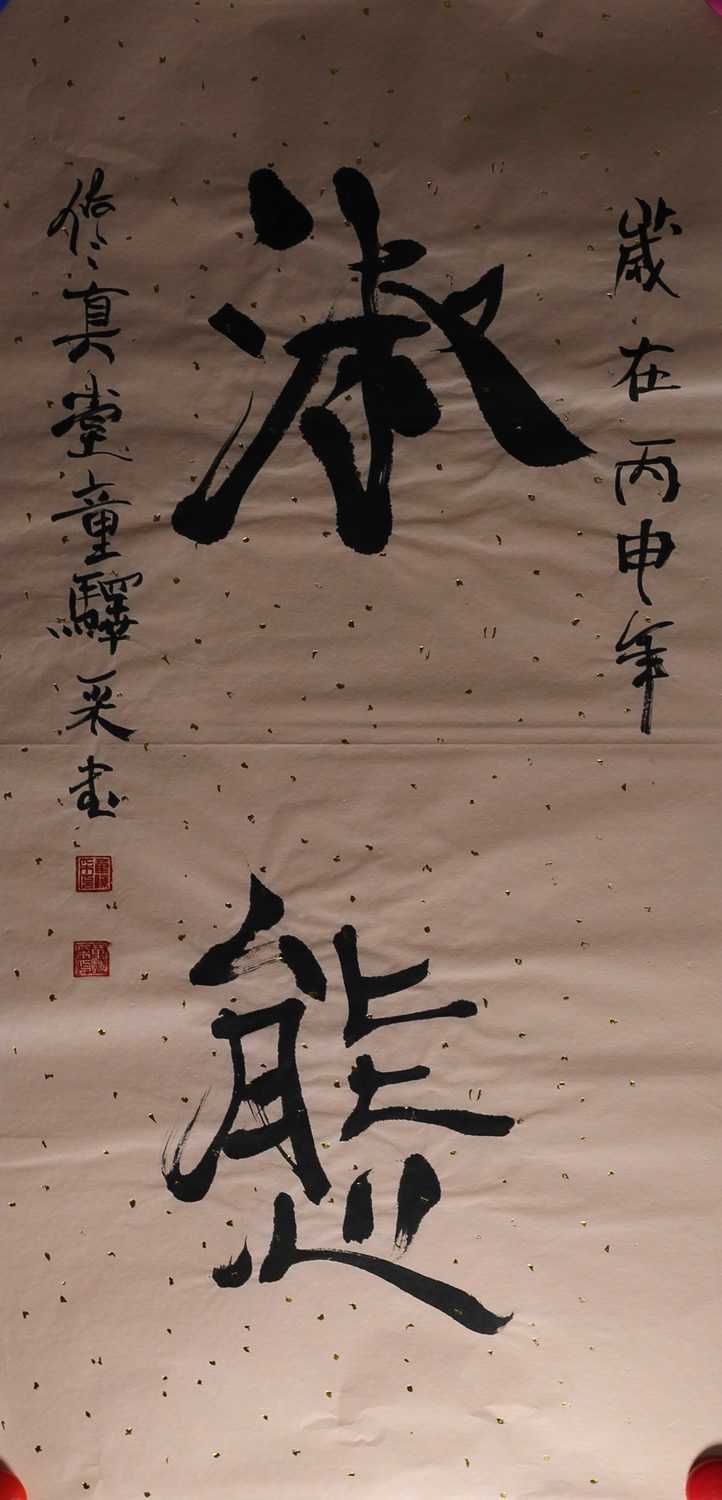 歲在丙申年
淑態
修真堂童驛采書